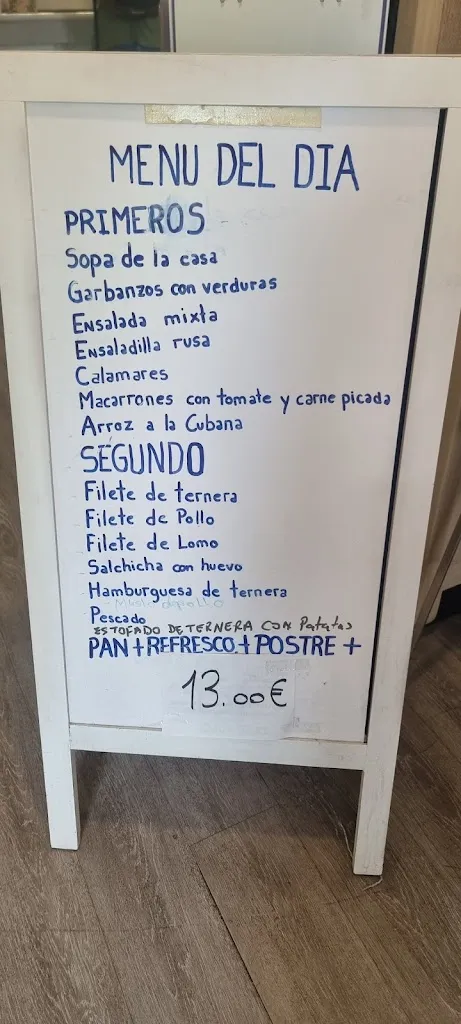 MENU DEL DIA
PRIMEROS
Sopa de la casa
Garbanzos con verduras
Ensalada mixta
Ensaladilla rusa
Calamares
Macarrones con tomate y carne picada
Arroz a la Cubana
SEGUNDO
Filete de ternera
Filete de Pollo
Filete de Lomo
Salchicha con huevo
Hamburguesa de ternera
Pescado
ESTOFADO DE TERNERA CON Patatas
PAN + REFRESCO + POSTRE +
13.00€